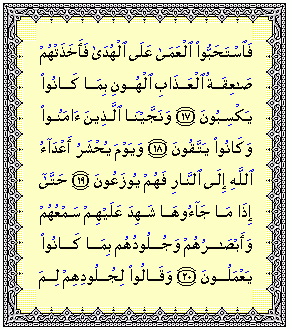 فَٱسْتَحَبُّوا۟ ٱلْعَمَىٰ عَلَى ٱلْهُدَىٰ فَأَخَذَتْهُمْ
صَٰعِقَةُ ٱلْعَذَابِ ٱلْهُونِ بِمَا كَانُوا۟
يَكْسِبُونَ ﴿١٧﴾ وَنَجَّيْنَا ٱلَّذِينَ ءَامَنُوا۟
وَكَانُوا۟ يَتَّقُونَ ﴿١٨﴾ وَيَوْمَ يُحْشَرُ أَعْدَآءُ
ٱللَّهِ إِلَى ٱلنَّارِ فَهُمْ يُوزَعُونَ ﴿١٩﴾ حَتَّىٰٓ
إِذَا مَا جَآءُوهَا شَهِدَ عَلَيْهِمْ سَمْعُهُمْ
وَأَبْصَٰرُهُمْ وَجُلُودُهُم بِمَا كَانُوا۟
يَعْمَلُونَ ﴿٢٠﴾ وَقَالُوا۟ لِجُلُودِهِمْ لِمَ